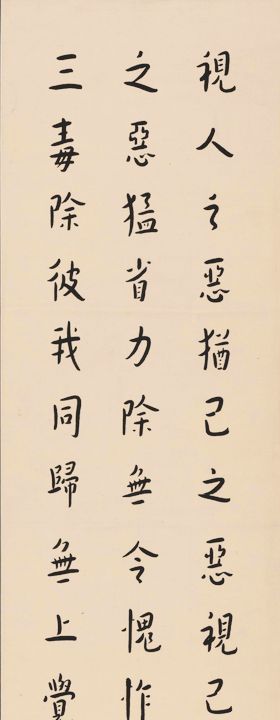 視人之惡猶己之惡視己
之惡猛省力除無令愧怍
三毒除彼我同歸無上覺